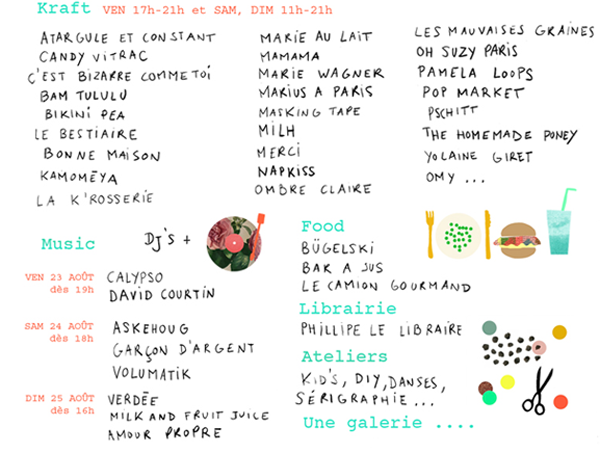 Kraft VEN 17h-21h et SAM, DIM 11h-21h
ATARGULE ET CONSTANT
CANDY VITRAC
C'EST BIZARRE COMME TOI
BAM TULULU
BIKINI PEA
LE BESTIAIRE
BONNE MAISON
KAMOMËYA
LA K'ROSSERIE
MARIE AU LAIT
MAMAMA
MARIE WAGNER
MARIUS A PARIS
MASKING TAPE
MILH
MERCI
NAPKISS
OMBRE CLAIRE
LES MAUVAISES GRAINES
OH SUZY PARIS
PAMELA LOOPS
POP MARKET
PSCHITT
THE HOMEMADE PONEY
YOLAINE GIRET
OMY ...
Music DJ'S +
VEN 23 AOÛT
dès 19h
CALYPSO
DAVID COURTIN
SAM 24 AOÛT
dès 18h
ASKEHOUG
GARÇON D'ARGENT
VOLUMATIK
DIM 25 AOÛT
dès 16h
VERDÉE
MILK AND FRUIT JUICE
AMOUR PROPRE
Food
BÜGELSKI
BAK A JUS
LE CAMION GOURMAND
Librairie
PHILLIPE LE LIBRAIRE
Ateliers
KID'S, DIY, DANSES,
SÉRIGRAPHIE ...
Une galerie ....